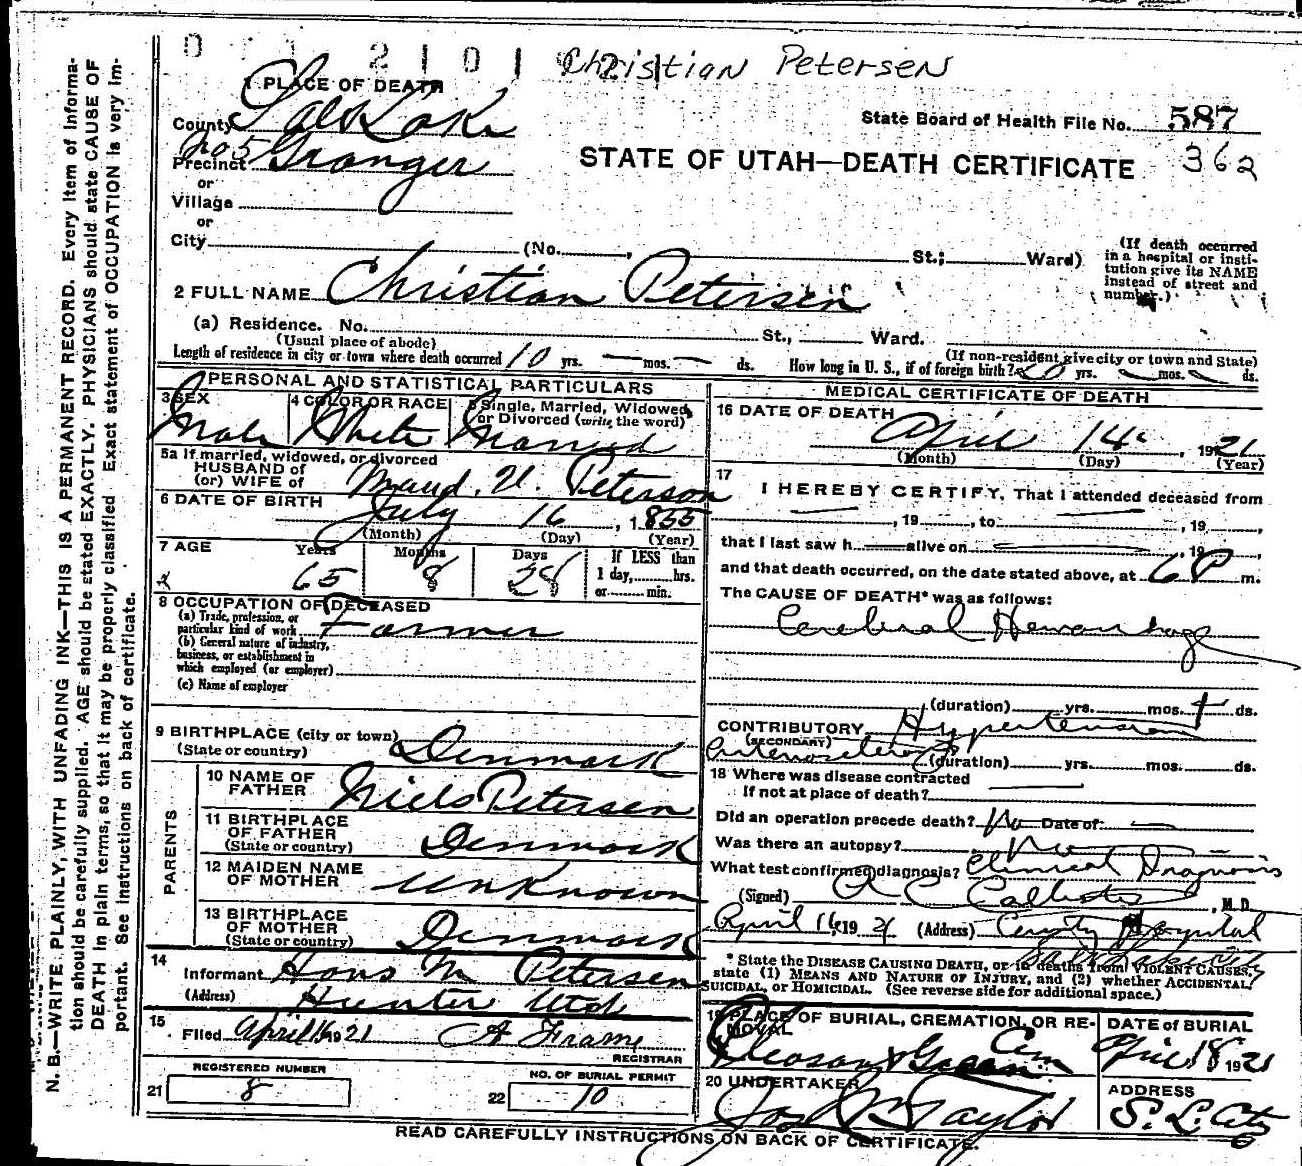 0 1 2 1 0 1 9 2 1 Christian Petersen
1 PLACE OF DEATH
County Salt Lake
State Board of Health File No. 587
362
Precinct No 5 Granger
STATE OF UTAH—DEATH CERTIFICATE
or
Village
or
City (No. , St.; Ward)
(If death occurred in a hospital or institution give its NAME instead of street and number.)
2 FULL NAME Christian Petersen
(a) Residence. No. St., Ward.
(Usual place of abode) (If non-resident give city or town and State)
Length of residence in city or town where death occurred 10 yrs. — mos. — ds. How long in U. S., if of foreign birth? yrs. mos. ds.
PERSONAL AND STATISTICAL PARTICULARS
3 SEX Male
4 COLOR OR RACE White
5 Single, Married, Widowed, or Divorced (write the word) Married
5a If married, widowed, or divorced
HUSBAND of
(or) WIFE of Maud. U. Peterson
6 DATE OF BIRTH
July 16, 1855
(Month) (Day) (Year)
7 AGE Years Months Days If LESS than
2 65 8 28 1 day, hrs.
or min.
8 OCCUPATION OF DECEASED
(a) Trade, profession, or
particular kind of work Farmer
(b) General nature of industry,
business, or establishment in
which employed (or employer)
(c) Name of employer
9 BIRTHPLACE (city or town)
(State or country) Denmark
PARENTS
10 NAME OF
FATHER Niels Petersen
11 BIRTHPLACE
OF FATHER
(State or country) Denmark
12 MAIDEN NAME
OF MOTHER Unknown
13 BIRTHPLACE
OF MOTHER
(State or country) Denmark
14
Informant Hans M Petersen
(Address) Hunter Utah
15.
Filed April 16 1921 A Frame
REGISTRAR
REGISTERED NUMBER
21 8
NO. OF BURIAL PERMIT
22 10
MEDICAL CERTIFICATE OF DEATH
16 DATE OF DEATH
April 14, 1921
(Month) (Day) (Year)
17
I HEREBY CERTIFY, That I attended deceased from
, 19 , to , 19 ,
that I last saw h alive on , 19 ,
and that death occurred, on the date stated above, at 6 P m.
The CAUSE OF DEATH* was as follows:
Cerebral Hemorrhage
(duration) yrs. mos. ds.
CONTRIBUTORY Hypertension
(SECONDARY) Arteriosclerosis
(duration) yrs. mos. ds.
18 Where was disease contracted
If not at place of death?
Did an operation precede death? No Date of: —
Was there an autopsy? No
What test confirmed diagnosis? Clinical Diagnosis
(Signed) A C Callister, M. D.
April 16, 1921 (Address) County Hospital
Salt Lake City
* State the DISEASE CAUSING DEATH, or in deaths from VIOLENT CAUSES,
state (1) MEANS AND NATURE OF INJURY, and (2) whether ACCIDENTAL,
SUICIDAL, or HOMICIDAL. (See reverse side for additional space.)
19 PLACE OF BURIAL, CREMATION, OR REMOVAL
Pleasant Green Cem
DATE of BURIAL
April 18 1921
20 UNDERTAKER
Jos Wm Taylor
ADDRESS
S. L. City
READ CAREFULLY INSTRUCTIONS ON BACK OF CERTIFICATE.
N. B.—WRITE PLAINLY, WITH UNFADING INK—THIS IS A PERMANENT RECORD. Every item of information should be carefully supplied. AGE should be stated EXACTLY. PHYSICIANS should state CAUSE OF DEATH in plain terms, so that it may be properly classified. Exact statement of OCCUPATION is very important. See instructions on back of certificate.